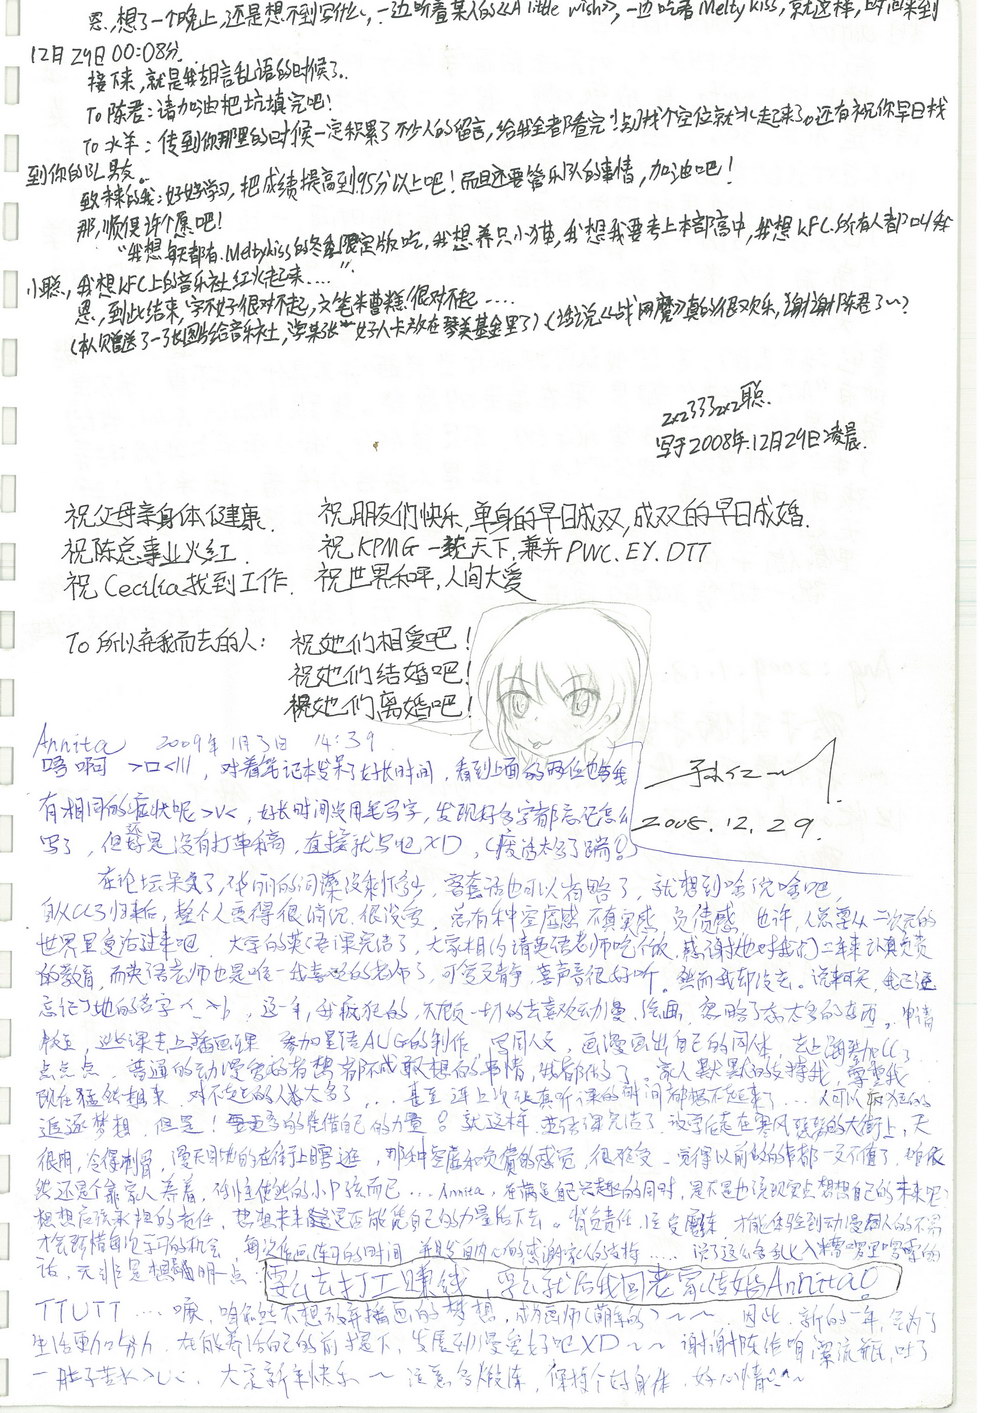 恩,想了一个晚上,还是想不到写什么,一边听着某人的《A little wish》,一边吃着Melty kiss,就这样,时间来到
12月29日00:08分.
接下来,就是我胡言乱语的时候了..
To 陈君:请加油把坑填完吧!
To 水羊:传到你那里的时候一定积累了不少人的留言,给我全都看完!到找个空位就扎起来了。还有祝你早日找
到你的BL男友。
致未来的我:好好学习,把成绩提高到95分以上吧!而且还要管乐队的事情,加油吧!
那,顺便许个愿吧!
"我想每天都有Meltykiss的冬季限定版吃,我想养只小猫,我想我要考上本部高中,我想KFC所有人都叫我
小聪,我想KFC上的音乐社红火起来...."
恩,到此结束,字不好很对不起,文笔米曹糕很对不起....
(本人赠送了一张图片给音乐社,学某张"好人卡"放在琴美基金里了)(话说《战网魔》真的很欢乐,谢谢陈君了~)
zxz333zxz聪.
写于2008年12月29日凌晨.
祝父母亲身体健康. 祝朋友们快乐,单身的早日成双,成双的早日成婚.
祝陈总事业火红. 祝KPMG一统天下,兼并PWC.EY.DTT
祝Cecilia找到工作. 祝世界和平,人间大爱
To 所以弃我而去的人: 祝她们相爱吧!
祝她们结婚吧!
祝她们离婚吧!
Annita 2009年1月3日 14:39.
唔啊 >口<|||,对着笔记本发呆了好长时间,看到上面的两位也与我
有相同的症状呢>v<,好长时间没用笔写字,发现好多字都忘记怎么
写了,但还是没有打草稿,直接就写吧XD,(废话太多了踹飞)
2008.12.29.
在论坛呆久了,华丽的词藻没剩多少,客套话也可以省略了,就想到啥说啥吧,
自从CC3归来后,整个人变得很消沉,很没劲,总有种空虚感不真实感 负债感 也许,人总要从二次元的
世界里复活过来吧 大学的英语课完结了,大家相约请英语老师吃个饭,感谢她对我们二年来认真负责
的教育,而英语老师也是唯一我喜欢的老师了,可爱文静,喜声音很好听。然而我却没去。说来可笑,自己还
忘记了她的名字<_>b,这一年,我疯狂的,不顾一切的去喜欢动漫,绘画,忽略了太太多的东西。申请
点点点 普通的动漫爱好者想都不敢想的事情,我都做了,家人默默的支持我,
现在猛然想来,对不起的人太多了,...甚至连上次认真听课的时间都想不起来了....人可以疯狂的
追逐梦想,但是!更要多的凭借自己的力量。就这样,英语课完结了,放学后走在寒风瑟瑟的大街上,天
很阴,冷得刺骨,漫无目地的在街上瞎逛,那种空虚和负债的感觉,很难受 觉得以前做的事都一文不值了,咱依
然还是个靠家人养着,任性使然的小P孩而已...Annita,在满足自己兴趣的同时,是不是也该现实点想想自己的未来呢?
想想应该承担的责任,想想未来是否能凭自己的力量活下去。背负责任,
才会珍惜每次学习的机会,每次作画练习的时间,并发自内心的感谢家人的支持.....说了这么多
话,无非是想说明一点: 要么去打工赚钱,要么就给我回老家结婚Annita!
TTUTT....嘛,咱依然不想放弃插画的梦想,成为画师(萌年的)~~~因此,新的一年,会为了
生活更加努力,在能养活自己的前提下,发展动漫爱好吧XD~~谢谢陈作咱漂流瓶,吐了
一肚子苦水>U<. 大家新年快乐~注意多锻炼,保持个好身体,好心情^_^~